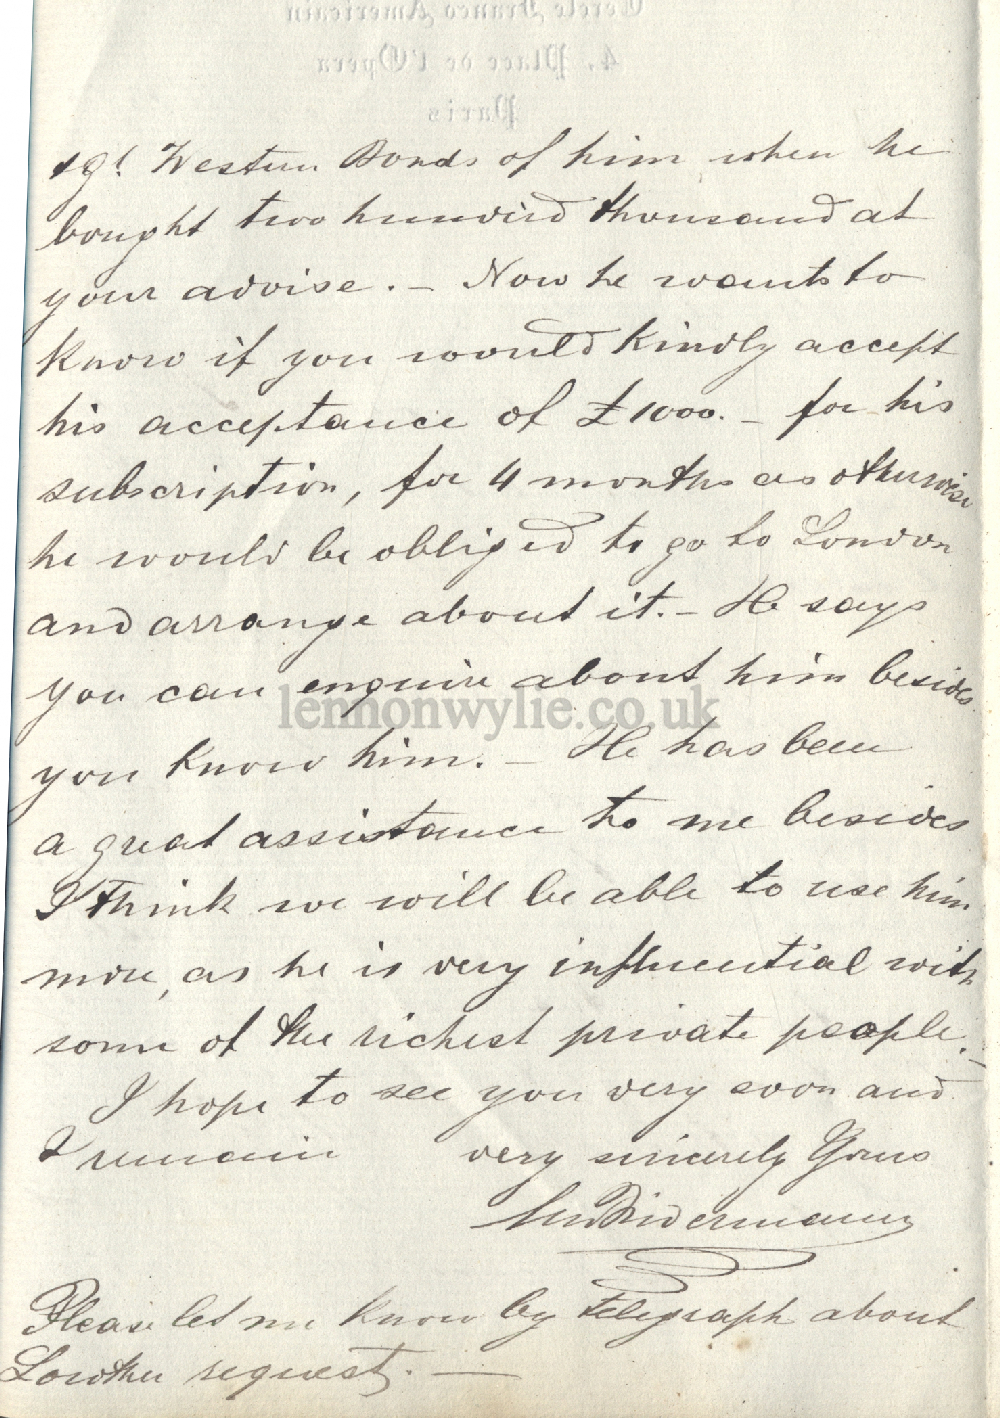 Cercle Franco Americain
4, Place de l'Opera
Paris
Western Bonds of him when he
bought two hundred thousand at
your advise. – Now he wants to
know if you would kindly accept
his acceptance of £1000. – for his
subscription, for 4 months as otherwise
he would be obliged to go to London
and arrange about it. – He says
you can enquire about him besides
you know him. – He has been
a great assistance to me besides
I think we will be able to use him
more, as he is very influential with
some of the richest private people. –
I hope to see you very soon and
I remain very sincerely Yours
Please let me know by telegraph about
Lowther request. –
lennonwylie.co.uk